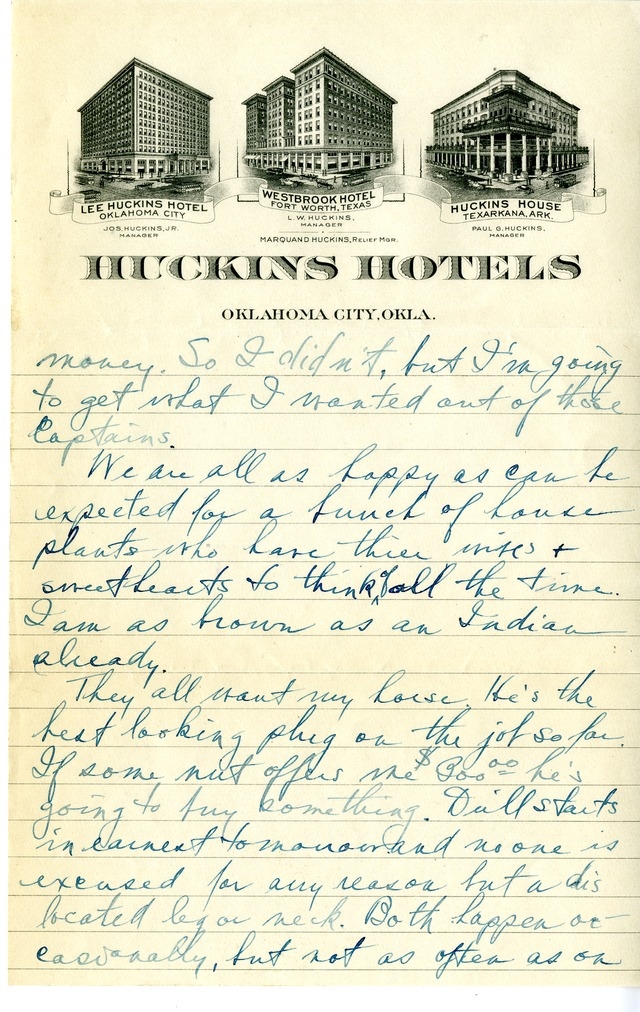 LEE HUCKINS HOTEL
OKLAHOMA CITY
JOS. HUCKINS, JR.
MANAGER
WESTBROOK HOTEL
FORT WORTH, TEXAS
L. W. HUCKINS,
MANAGER
MARQUAND HUCKINS, RELIEF MGR.
HUCKINS HOUSE
TEXARKANA, ARK.
PAUL G. HUCKINS,
MANAGER
HUCKINS HOTELS
OKLAHOMA CITY, OKLA.
money. So I didn't, but I'm going
to get what I wanted out of those
Captains.
We are all as happy as can be
expected for a bunch of house
plants who have thier wives +
sweethearts to think of all the time.
I am as brown as an Indian
already.
They all want my horse. He's the
best looking plug on the job so far.
If some nut offers me $300.00 he's
going to buy something. Drill starts
in earnest tomorrow and no one is
excused for any reason but a dis
located leg or neck. Both happen oc-
casionally, but not as often as on